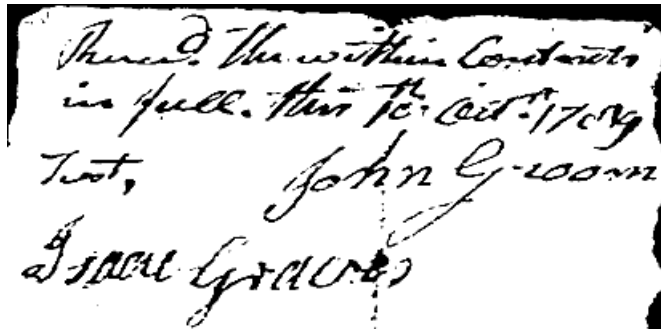 Receiv.d the within Contents
in full. this 7th Octr. 1789
Test,
John Groom
Isaac Graves